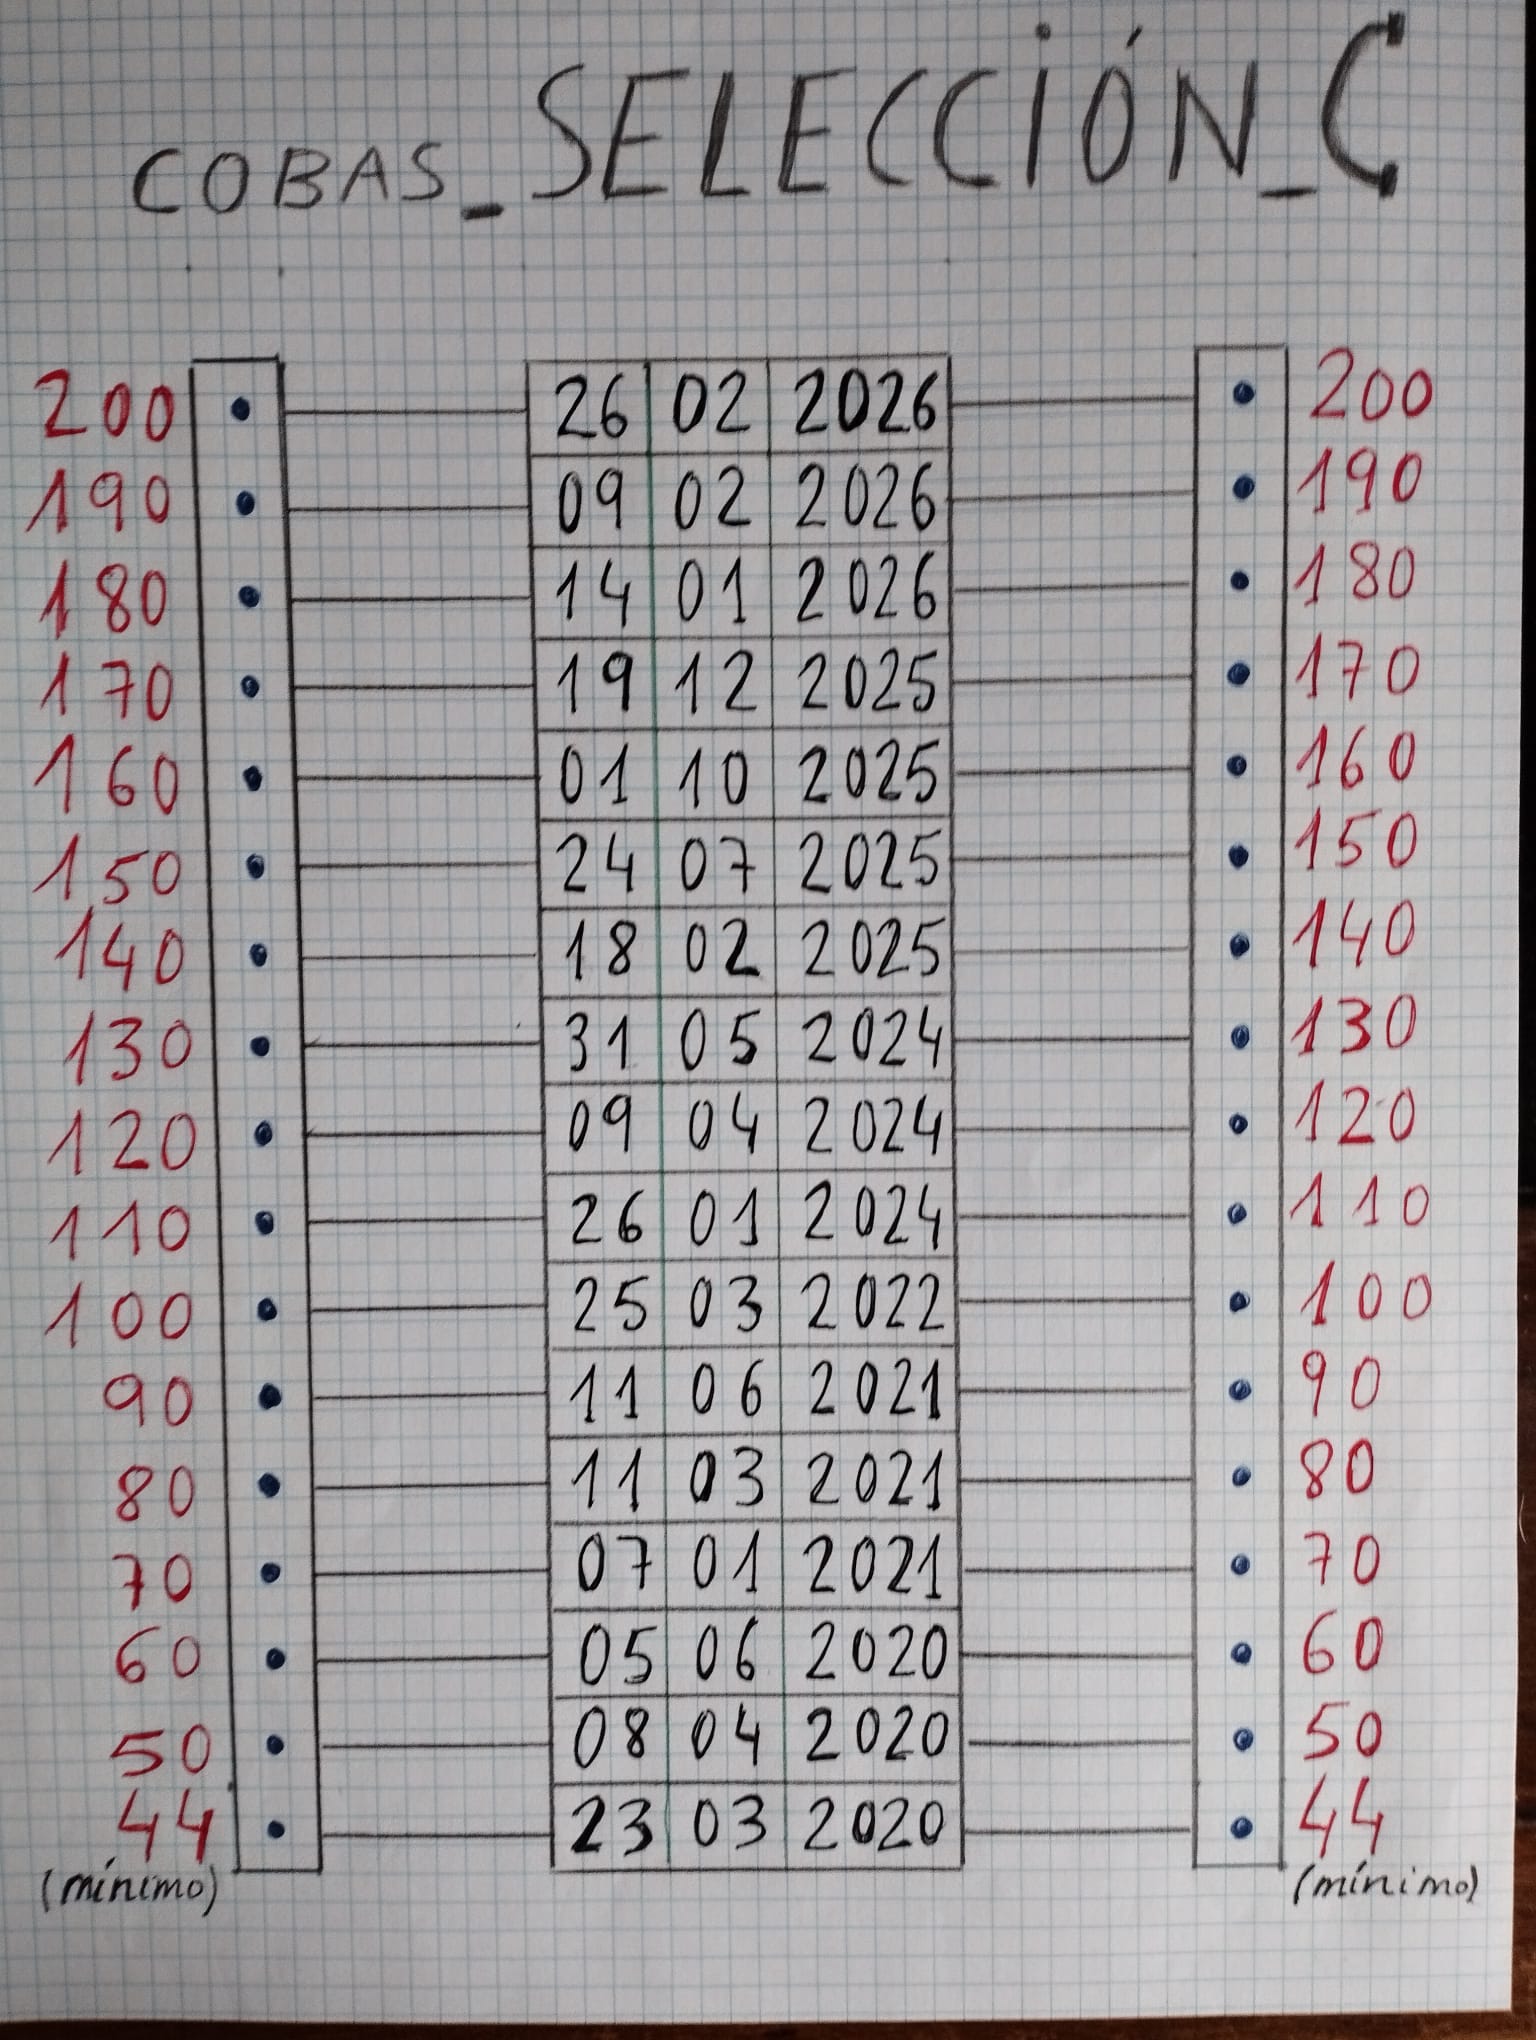 COBAS_SELECCIÓN_C
200 26 02 2026 200
190 09 02 2026 190
180 14 01 2026 180
170 19 12 2025 170
160 01 10 2025 160
150 24 07 2025 150
140 18 02 2025 140
130 31 05 2024 130
120 09 04 2024 120
110 26 01 2024 110
100 25 03 2022 100
90 11 06 2021 90
80 11 03 2021 80
70 07 01 2021 70
60 05 06 2020 60
50 08 04 2020 50
44 23 03 2020 44
(mínimo) (mínimo)